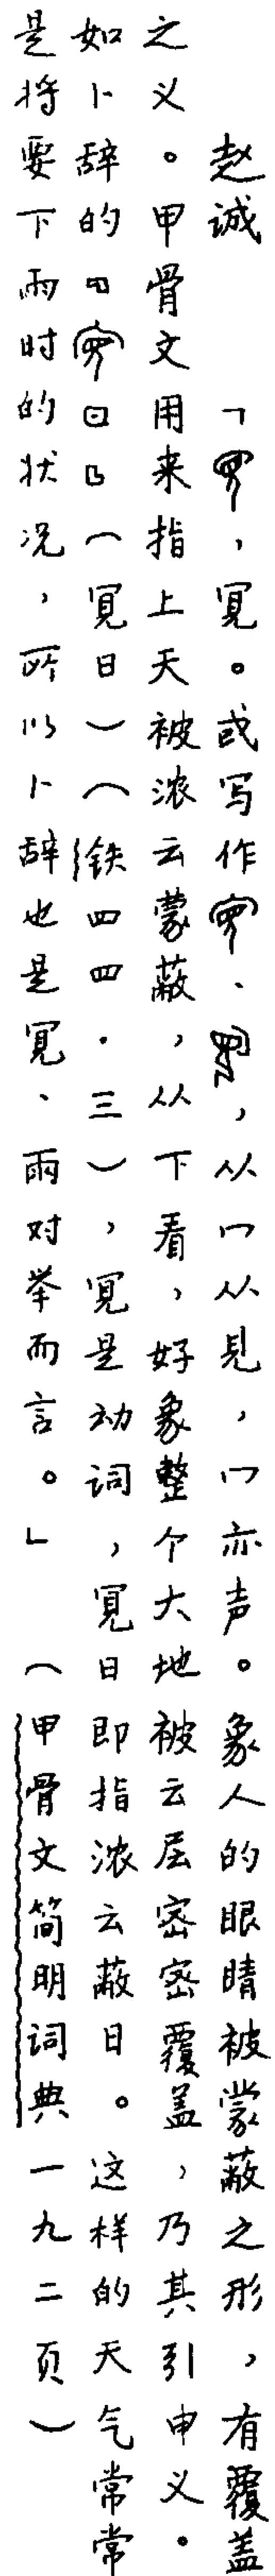 赵诚　「，冥。或写作、，从冖从见，冖亦声。象人的眼睛被蒙蔽之形，有覆盖
之义。甲骨文用来指上天被浓云蒙蔽，从下看，好象整个大地被云层密密覆盖，乃其引申义。
如卜辞的『日』（冥日）（铁四四·三），冥是动词，冥日即指浓云蔽日。这样的天气常常
是将要下雨时的状况，所以卜辞也是冥、雨对举而言。」（甲骨文简明词典一九二页）